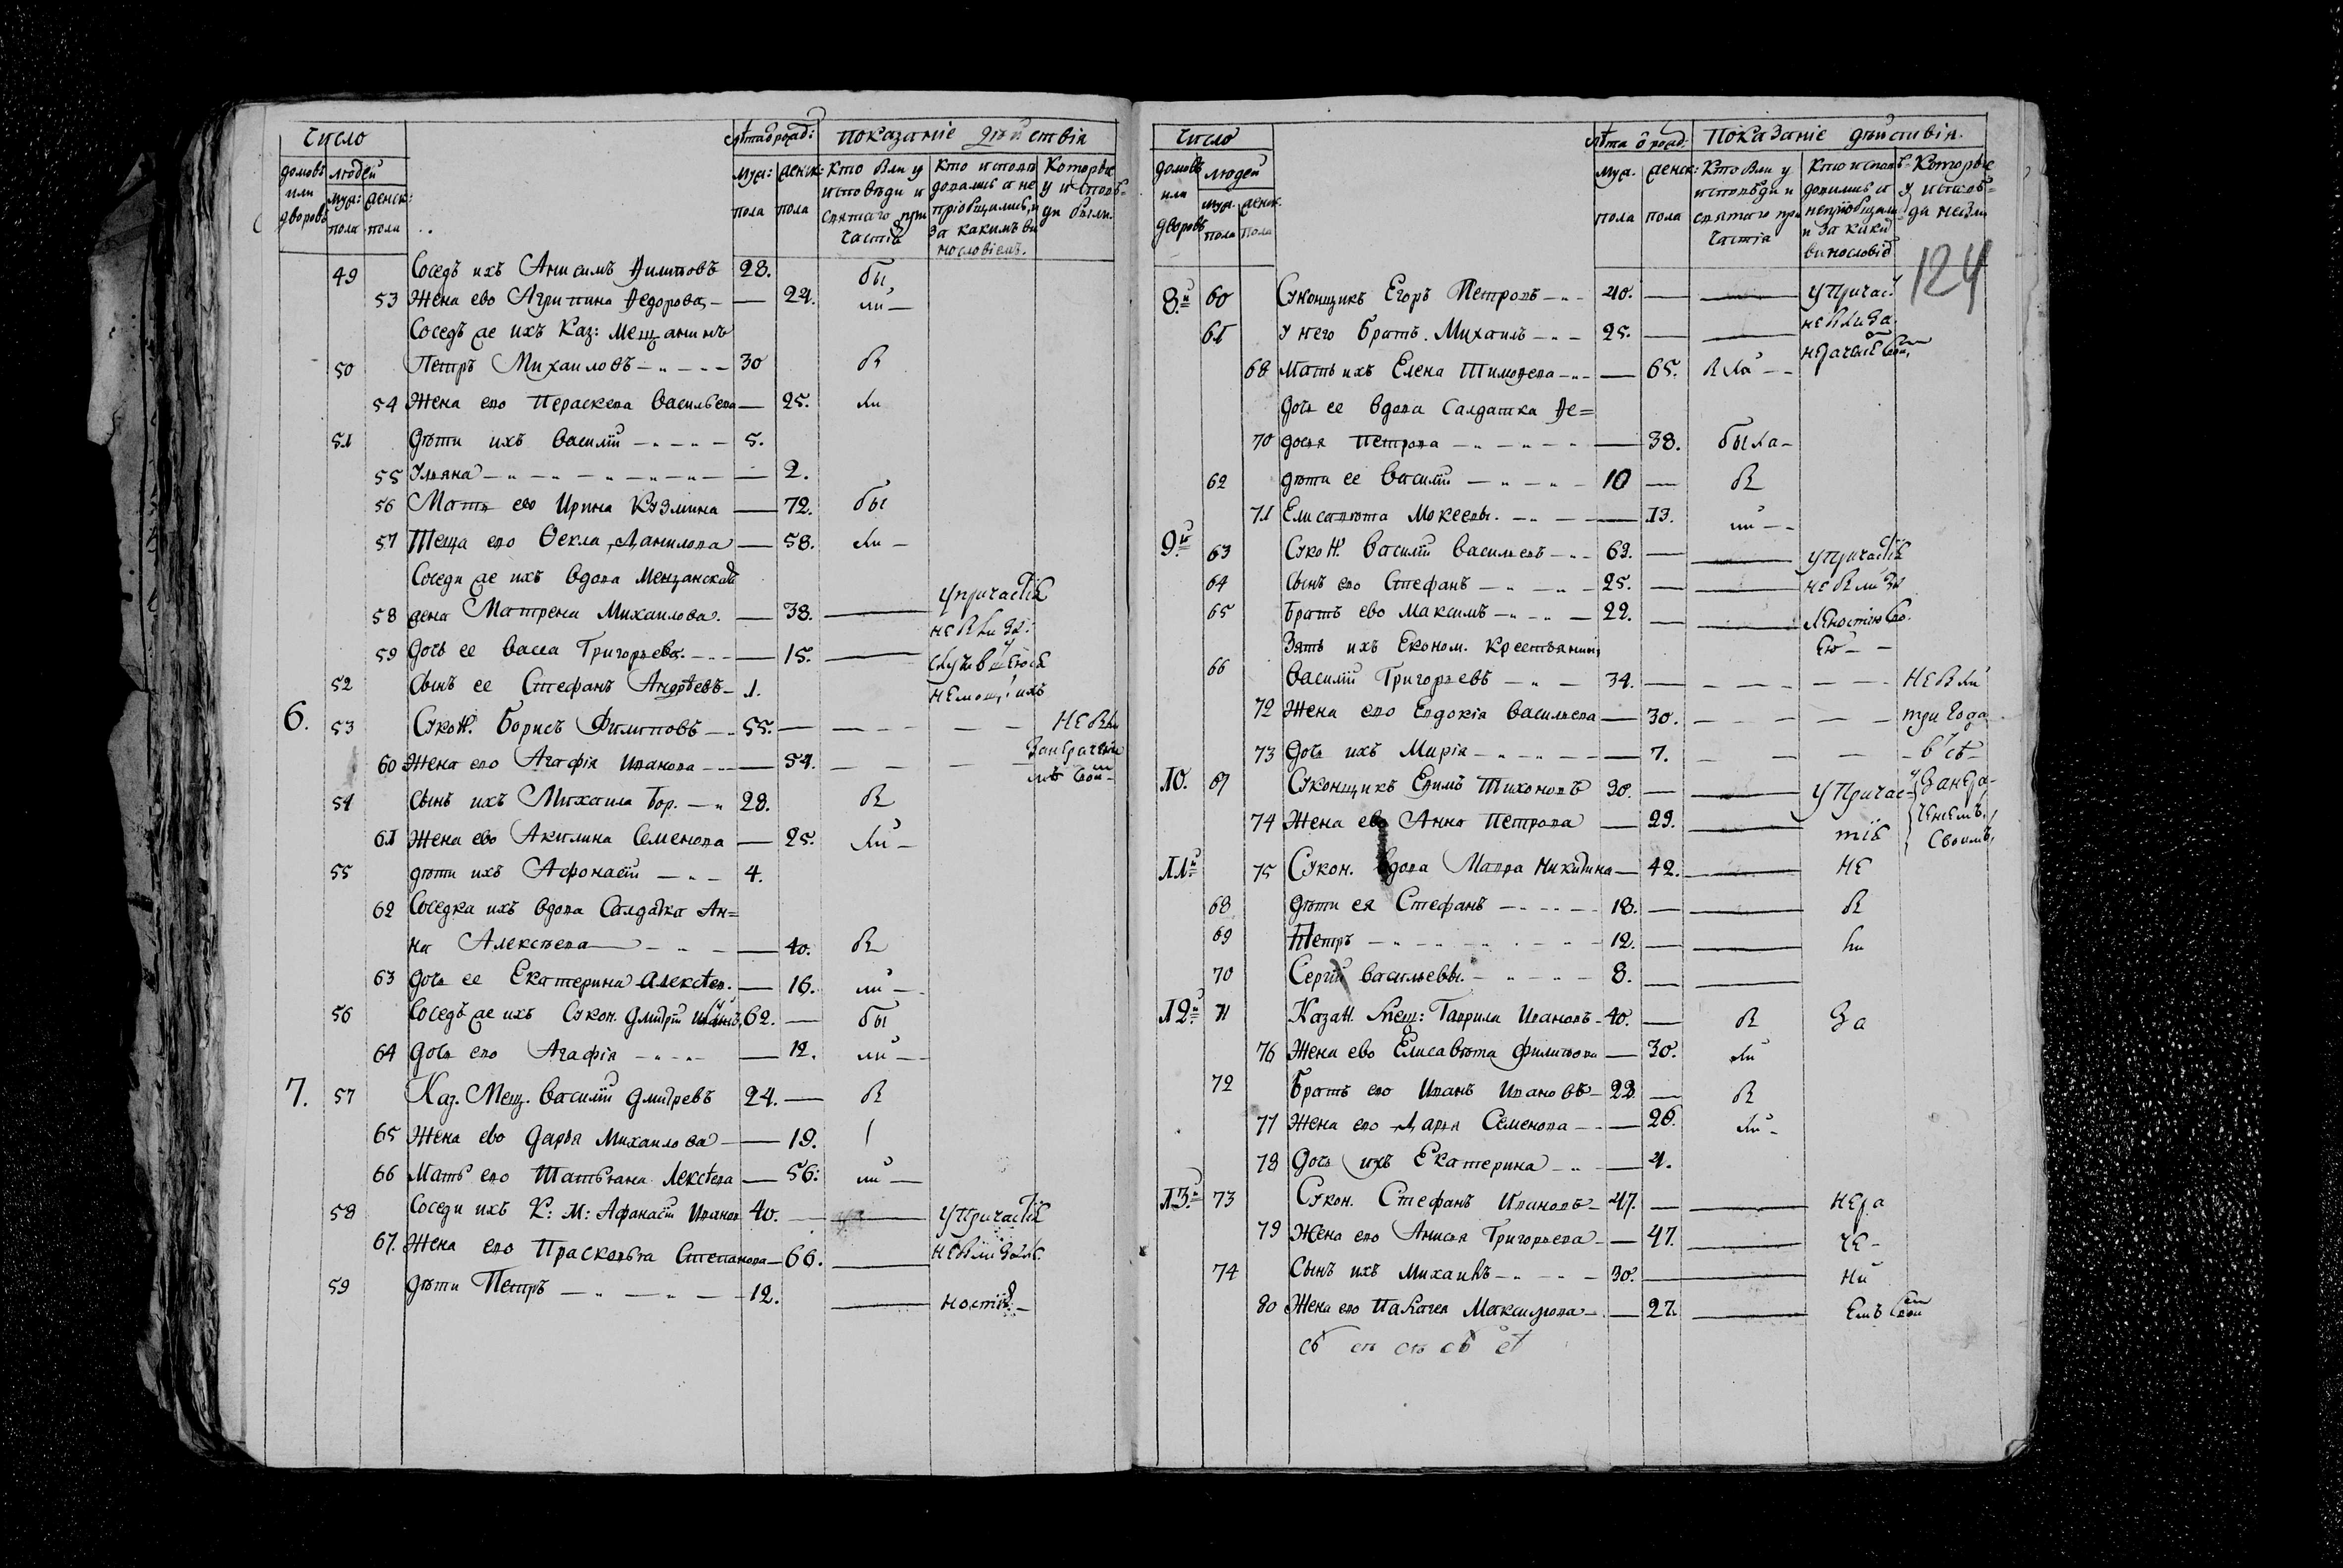 Число
Лѣта ѿ рожд: Показаніе дѣйствія
домовъ или дворовъ
людей
муж: пола женск: пола
муж: пола
женск: пола
Кто были у исповѣди и святаго причастія
Кто исповѣдовались а не пріобщились, и за какимъ винословіемъ.
Которые у исповѣди не были
49 Сосѣдъ ихъ Анисимъ Филиповъ 28. бы
53 Жена ево Агрипина Ѳедорова — 24. ли —
Сосѣдъ же ихъ Каз: мещанинъ
50 Петръ Михаиловъ 30 б
54 Жена ево Параскева Васильева — 25. ли
51 Дѣти ихъ Василій 5.
55 Ульяна — 2.
56 Мать ево Ирина Кузмина — 72. бы
57 Теща ево Ѳекла Данилова — 58. ли —
Соседи же ихъ вдова Мещанская
58 жена Матрена Михаилова. — 38. — упричастія
59 Дочь ее Васса Григорьева. — 15. — не были за
52 Сынъ ее Стефанъ Андреевъ 1. немощ. ихъ
6. 53 Сукон. Борисъ Филиповъ 55. — не были
60 Жена ево Агафія Иванова — 54. — за нерачені
54 Сынъ ихъ Михаила Бор. 28. бы
61 Жена ево Акилина Семенова — 25. ли —
55 дѣти ихъ Афонасій 4.
62 Соседка ихъ вдова Салдатка Ан=
на Алексѣева — 40. бы
63 Дочь ее Екатерина Алексѣев. — 16. ли —
56 Сосѣдъ же ихъ Сукон. Дмитрій Ивановъ 62. — бы
64 Дочь ево Агафія — 12. ли —
7. 57 Каз. Мещ. Василій Дмитревъ 24. — бы
65 Жена ево Дарья Михаилова — 19.
66 Мать ево Татьяна Лексѣева — 56: ли —
58 Соседи ихъ К: М: Афанасій Иванов 40. — упричастія
67. Жена ево Прасковья Степанова — 66. — не были за
59 Дѣти Петръ 12. — ностію —
Число
Лѣта ѿ рожд: Показаніе дѣйствія.
домовъ или дворовъ
людей
муж. пола женск. пола
муж. пола
женск: пола
Кто были у исповѣди и святаго причастія
Кто исповѣдовались а не пріобщались и за каким винословіе
Которые у исповѣда не были
124
8й 60 Суконщикъ Егоръ Петровъ 40. — упричас.
61 У него братъ Михаилъ 25. — не были за
68 Мать ихъ Елена Тимофеева — 65. была
Дочь ее вдова салдатка Ѳе=
70 досья Петрова — 38. была —
62 дѣти ее Василій 10 — бы
71 Елисавета Мокеевы. — 13. ли
9й 63 Сукон. Василій Васильевъ 62. — упричастія
64 Сынъ ево Стефанъ 25. — не были за
65 Братъ ево Максимъ 22. — леностію сво
Зять ихъ Економ. Крестьянинъ ею
66 Василій Григорьевъ 34. — не были
72 Жена ево Евдокія Васильева — 30. — три года
73 Дочь ихъ Марія — 7. — всѣ
10. 67 Суконщикъ Ефимъ Тихоновъ 30. — упричас- за нера-
74 Жена ево Анна Петрова — 29. — тія ченіемъ своимъ
11й 75 Сукон. вдова Мавра Никитина — 42. — не
68 Дѣти ея Стефанъ 18. — бы
69 Петръ 12. — ли
70 Сергій Васильевы. 8. —
12й 71 Казан. мещ: Гаврила Ивановъ 40. — бы за
76 Жена ево Елисавета Филипова — 30. ли
72 Братъ ево Иванъ Ивановъ 22 — бы
77 Жена ево Дарья Семенова — 20. ли —
78 Дочь ихъ Екатерина — 4.
13й 73 Сукон. Стефанъ Ивановъ 47. — нера
79 Жена ево Анисья Григорьева — 47. — че-
74 Сынъ ихъ Михаилъ 30. — ни
80 Жена ево Палагея Максимова — 27. — емъ свои